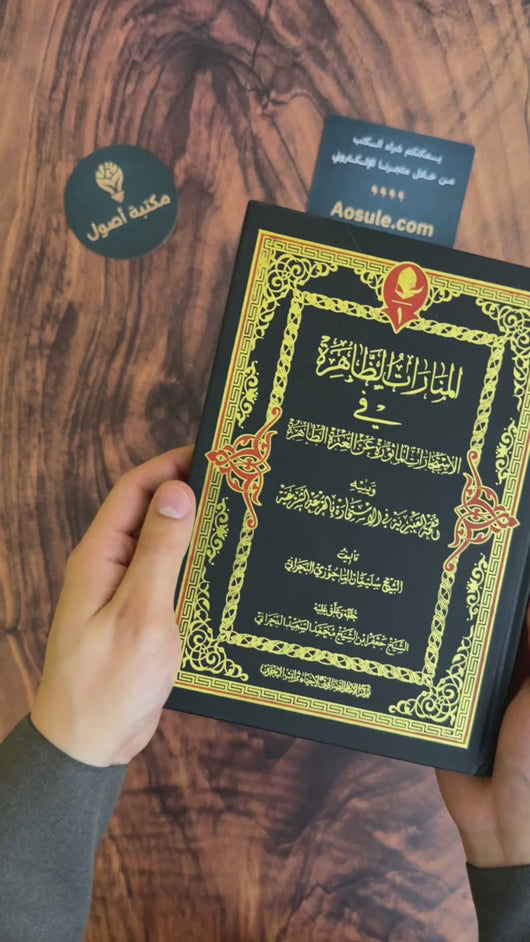 مكتبة أصول
يمكنكم شراء الكتب
من خلال متجرنا الإلكتروني
Aosule.com
١
المنارات الظاهرة
في
الاستخارات المأثورة عن العترة الطاهرة
ويليه
في الاستخارة بالقرعة الشرعية
تأليف
الشيخ سليمان الماحوزي البحراني
حققه وعلق عليه
الشيخ جعفر ابن الشيخ محمد السعيد البحراني